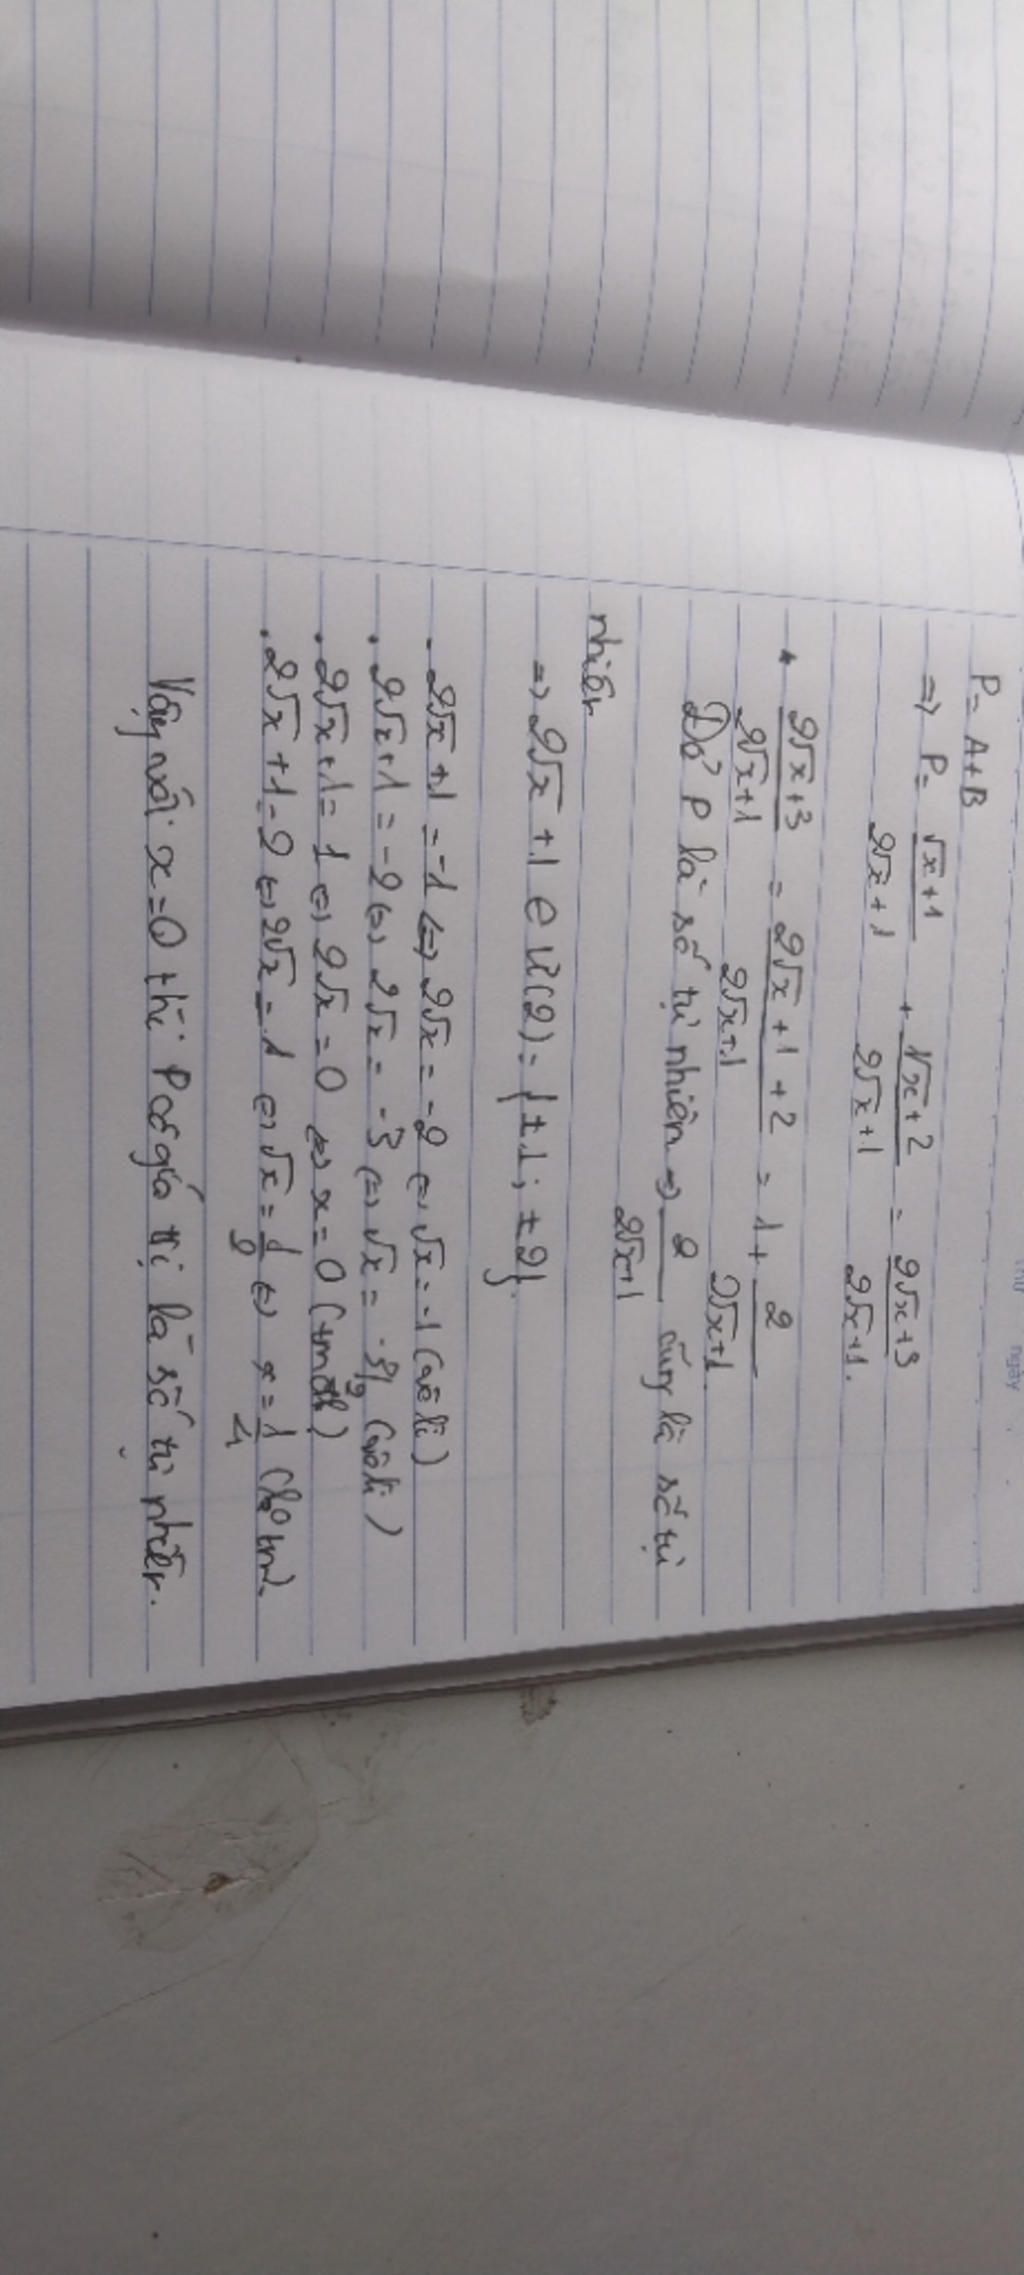 Thứ ngày
P = A+B
=> P = √x+1/2√x+1 + √x+2/2√x+1 = 2√x+3/2√x+1.
* 2√x+3/2√x+1 = 2√x+1+2/2√x+1 = 1 + 2/2√x+1.
Để P là số tự nhiên => 2/2√x+1 cũng là số tự
nhiên
=> 2√x+1 ∈ Ư(2) = {±1; ±2}.
. 2√x+1 = -1 <=> 2√x = -2 <=> √x = -1 (vô lí)
. 2√x+1 = -2 <=> 2√x = -3 <=> √x = -3/2 (vô lí)
. 2√x+1 = 1 <=> 2√x = 0 <=> x = 0 (tmđk)
. 2√x+1 = 2 <=> 2√x = 1 <=> √x = 1/2 <=> x = 1/4 (ko tm).
Vậy với x=0 thì P có giá trị là số tự nhiên.